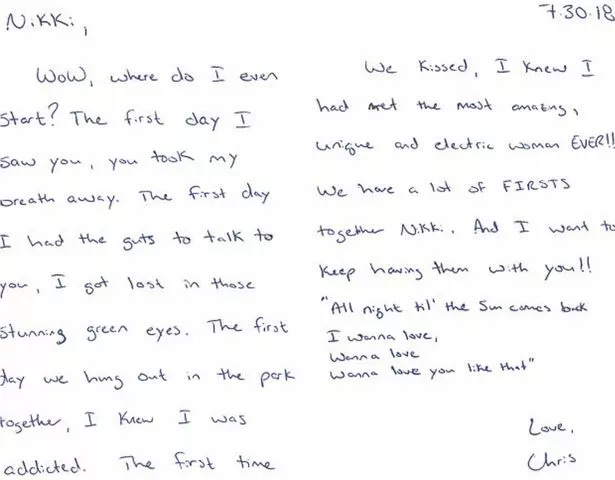 Nikki,
Wow, where do I even
start? The first day I
saw you, you took my
breath away. The first day
I had the guts to talk to
you, I got lost in those
stunning green eyes. The first
day we hung out in the park
together, I knew I was
addicted. The first time
7.30.18
We kissed, I knew I
had met the most amazing,
unique and electric woman EVER!!
We have a lot of FIRSTS
together Nikki. And I want to
keep having them with you!!
"All night til' the sun comes back
I wanna love,
wanna love
wanna love you like that"
Love,
Chris